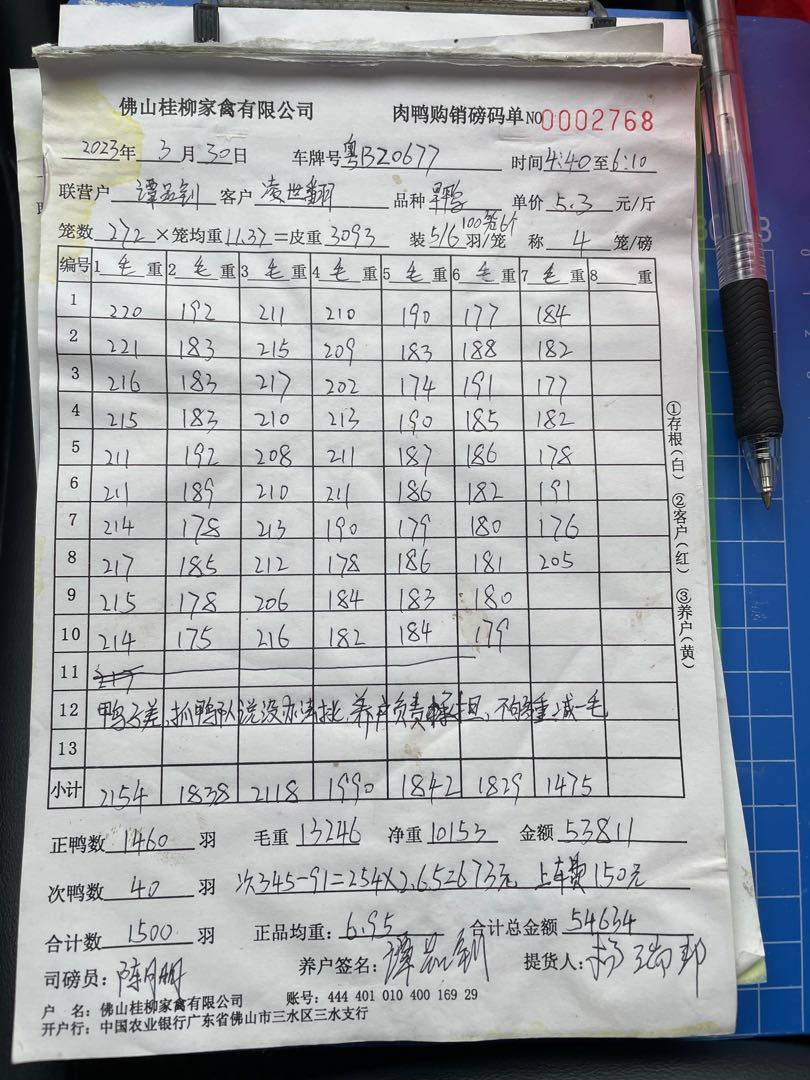 佛山桂柳家禽有限公司 肉鸭购销磅码单 NO 0002768
2023年 3 月 30 日 车牌号 粤B20677 时间 4:40 至 6:10
联营户 谭 钊 客户 凌世翻 品种 鸭 单价 5.3 元/斤
笼数 272 ×笼均重 11.37 =皮重 3093 装 5/6 羽/笼 称 4 笼/磅
编号 1 毛 重 2 毛 重 3 毛 重 4 毛 重 5 毛 重 6 毛 重 7 毛 重 8 重
1 220 192 211 210 190 177 184
2 221 183 215 209 183 188 182
3 216 183 217 202 174 191 177
4 215 183 210 213 190 185 182
5 211 192 208 211 187 186 178
6 211 189 210 211 186 182 191
7 214 178 213 190 179 180 176
8 217 185 212 178 186 181 205
9 215 178 206 184 183 180
10 214 175 216 182 184 179
11
12 鸭子差,抓鸭队说没办法挑,养户负责承担,不够重减一毛
13
小计 2154 1838 2118 1990 1842 1829 1475
正鸭数 1460 羽 毛重 13246 净重 10153 金额 53811
次鸭数 40 羽 次345-91=254×2.65=673元, 上车费150元
合计数 1500 羽 正品均重: 6.95 合计总金额 54634
司磅员: 陈 明 养户签名: 谭 钊 提货人: 杨 邦
户 名: 佛山桂柳家禽有限公司 账号: 444 401 010 400 169 29
开户行: 中国农业银行广东省佛山市三水区三水支行
①存根(白) ②客户(红) ③养户(黄)